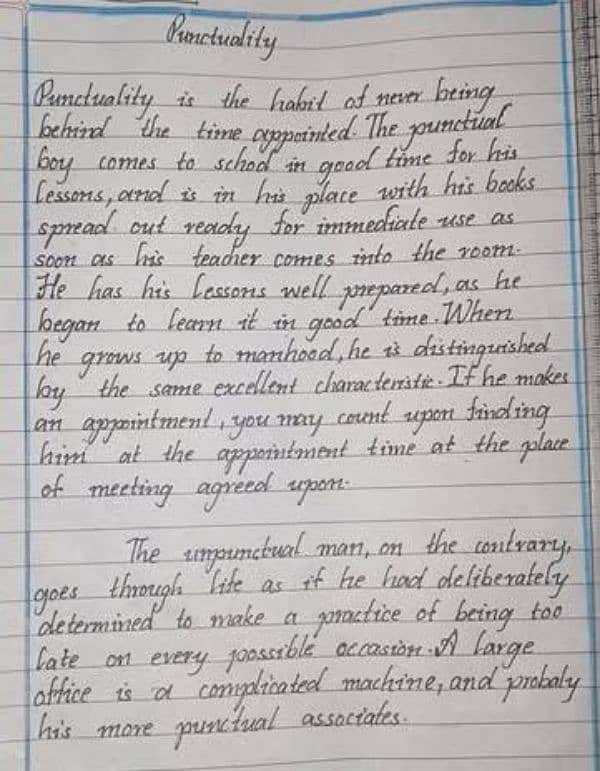 Punctuality
Punctuality is the habit of never being
behind the time appointed. The punctual
boy comes to school in good time for his
lessons, and is in his place with his books
spread out ready for immediate use as
soon as his teacher comes into the room.
He has his lessons well prepared, as he
began to learn it in good time. When
he grows up to manhood, he is distinguished
by the same excellent characteristic. If he makes
an appointment, you may count upon finding
him at the appointment time at the place
of meeting agreed upon.
The unpunctual man, on the contrary,
goes through life as if he had deliberately
determined to make a practice of being too
late on every possible occasion. A large
office is a complicated machine, and probaly
his more punctual associates.